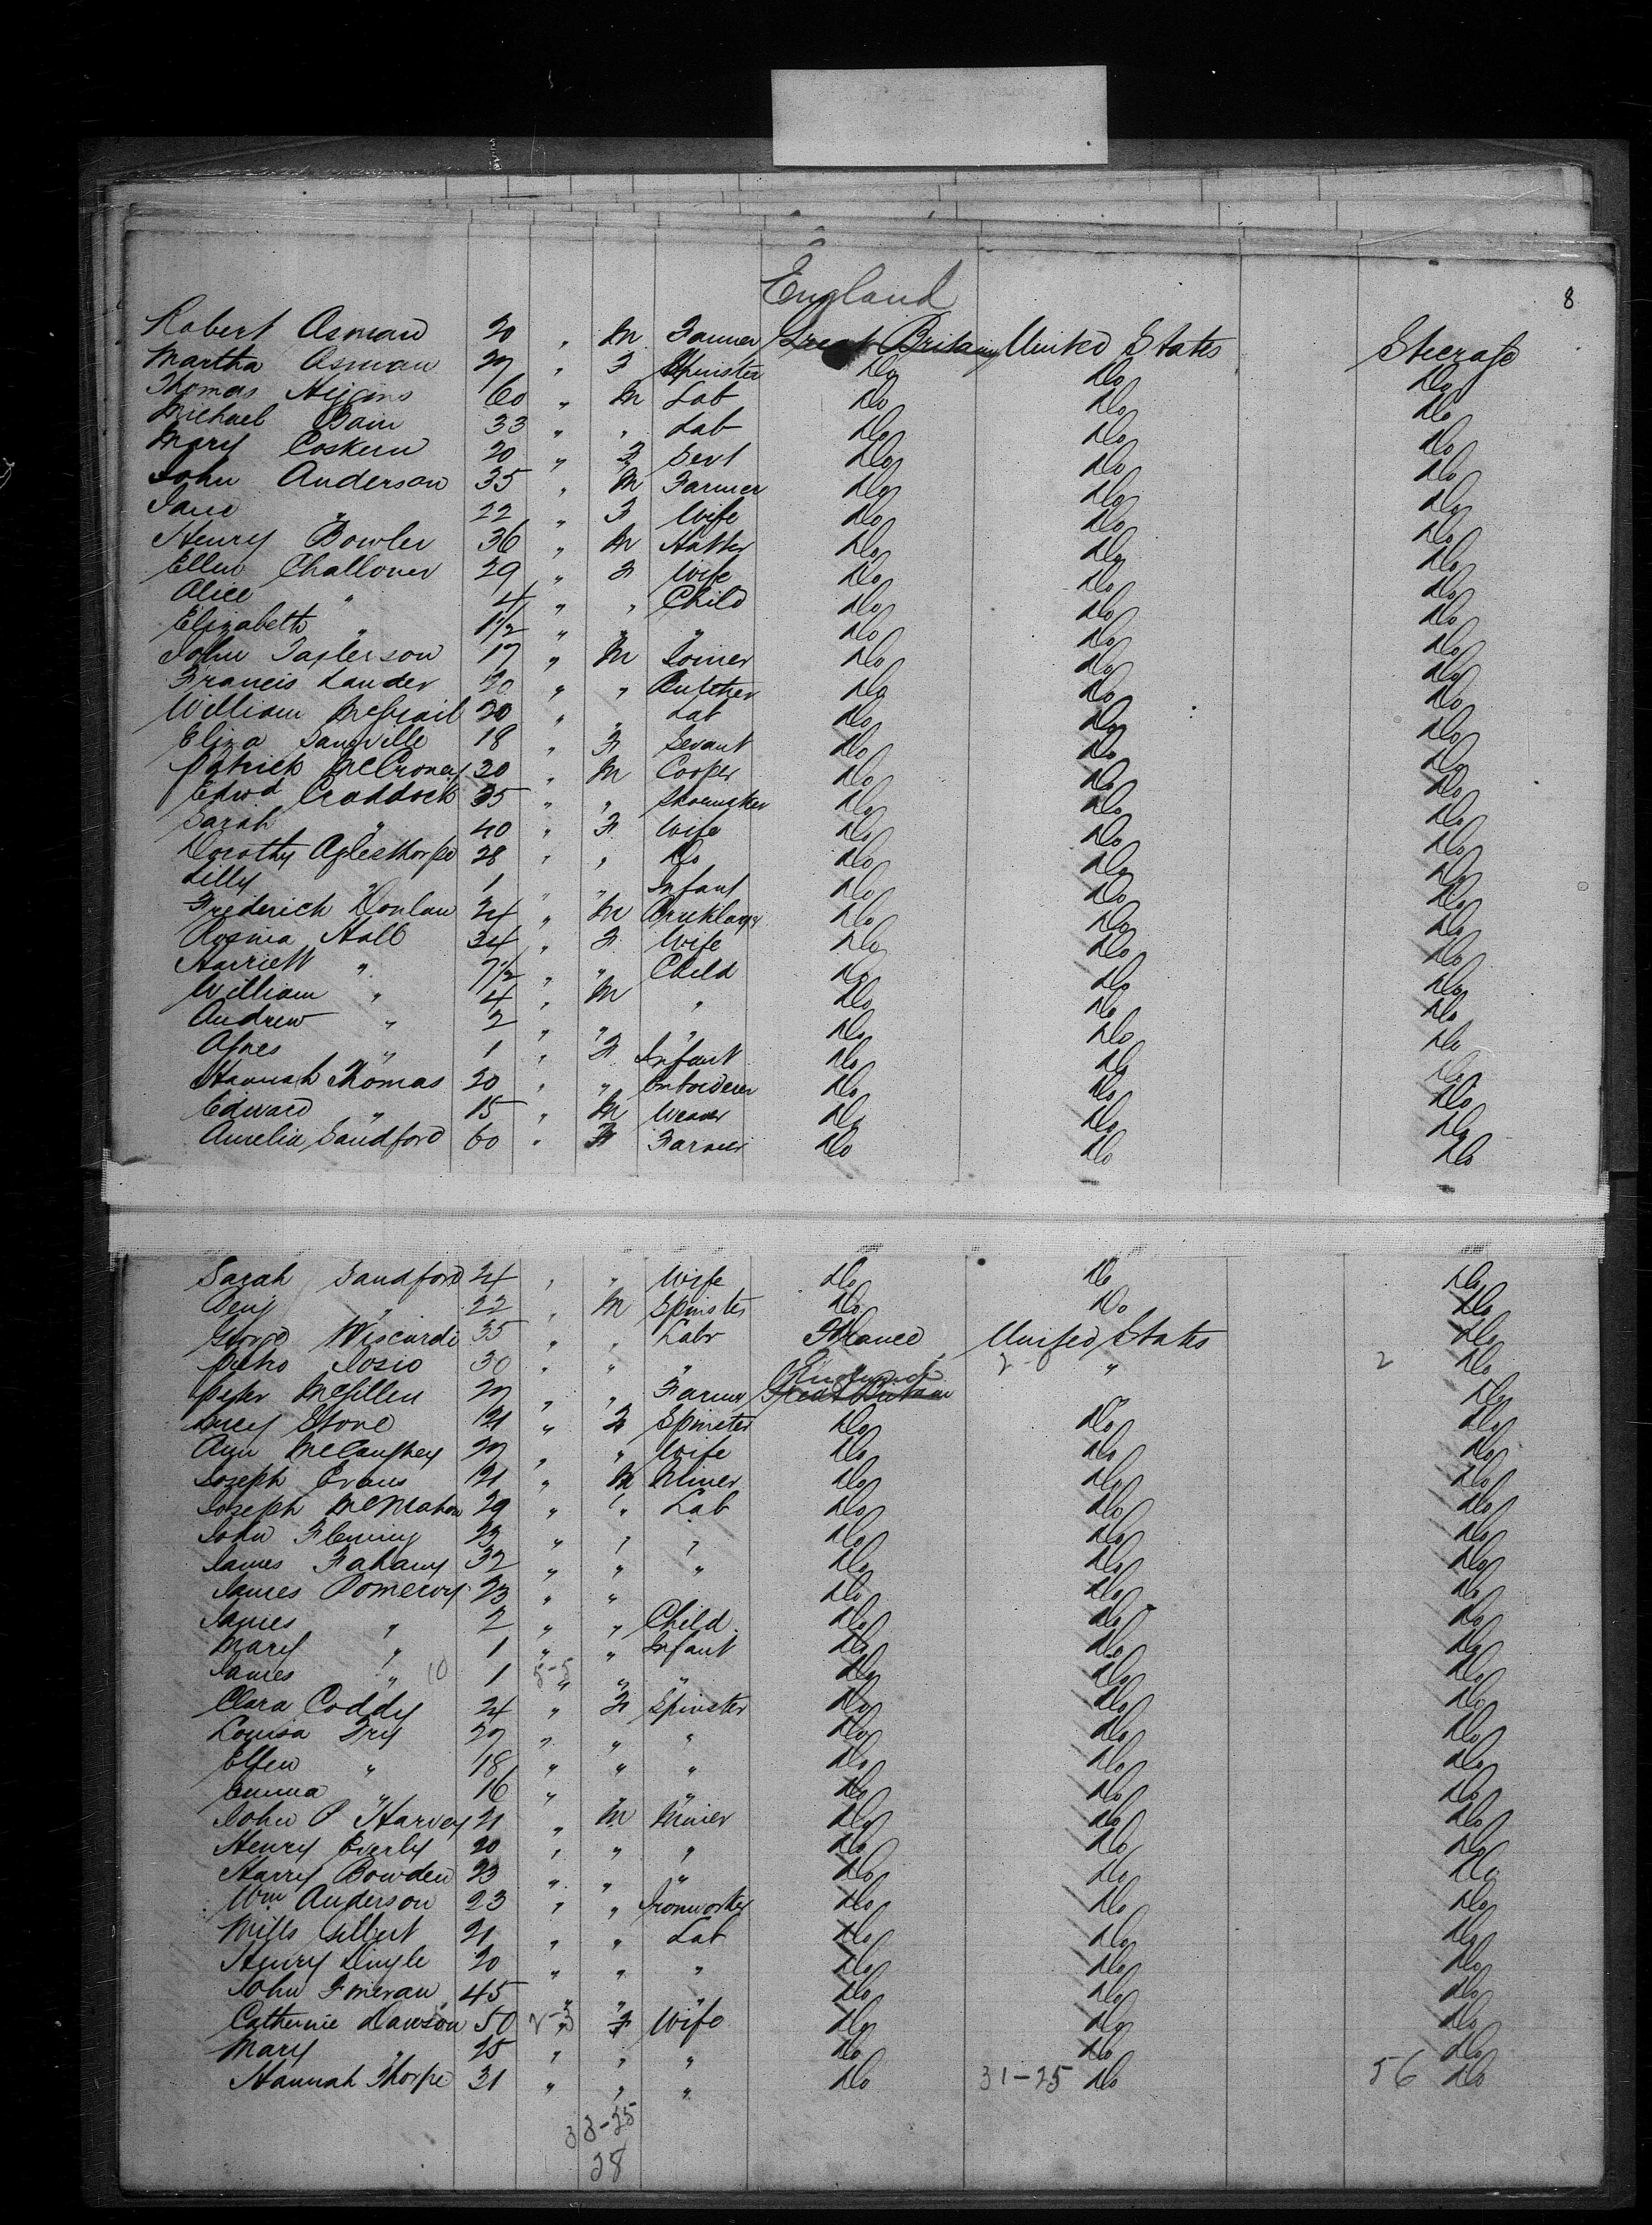 8
England
Robert Osman 20 " M Farmer Great Britain United States Steerage
Martha Osman 27 " F Spinster Do Do Do
Thomas Higgins 60 " M Lab Do Do Do
Michael Bain 33 " " Lab Do Do Do
Mary Coskern 20 " F Sevt Do Do Do
John Anderson 35 " M Farmer Do Do Do
Jane " 22 " F Wife Do Do Do
Henry Bowler 36 " M Hatter Do Do Do
Ellen Challoner 29 " F Wife Do Do Do
Alice " 4 " " Child Do Do Do
Elizabeth " 1 1/2 " " " Do Do Do
John Taylerson 17 " M Joiner Do Do Do
Francis Lander 20 " " Butcher Do Do Do
William McGrail 20 " " Lab Do Do Do
Eliza Sanville 18 " F Sevant Do Do Do
Patrick McCroney 20 " M Cooper Do Do Do
Edwd Craddock 35 " " Shoemaker Do Do Do
Sarah " 40 " F Wife Do Do Do
Dorothy Aglesthorpe 28 " " Do Do Do Do
Lilly " 1 " " Infant Do Do Do
Frederick Donlan 24 " M Bricklayer Do Do Do
Rosina Hall 34 " F Wife Do Do Do
Harriett " 7 1/2 " " Child Do Do Do
William " 4 " M " Do Do Do
Andrew " 2 " " " Do Do Do
Agnes " 1 " F Infant Do Do Do
Hannah Thomas 20 " " Emborderer Do Do Do
Edward " 15 " M Weaver Do Do Do
Aurelia Sandford 60 " F Farmer Do Do Do
Sarah Sandford 24 " " Wife Do Do Do
Benj " 22 " M Spinster Do Do Do
Wiscardi 35 " " Labr France United States Do
Pietro Rosio 30 " " " " 2 " 2 Do
England
Peter McGillen 27 " " Farmer Great Britain Do
Lucy Stone 21 " F Spinster Do Do Do
Ann McCaughey 27 " " Wife Do Do Do
Joseph Evans 21 " M Miner Do Do Do
Joseph McMahon 29 " " Lab Do Do Do
John Fleming 23 " " " Do Do Do
James Fahany 32 " " " Do Do Do
James Pomeroy 23 " " Do Do Do
James " 2 " " Child Do Do Do
Mary " 1 " " Infant Do Do Do
James " 10 1 5-5 " " " Do Do Do
Clara Coddy 24 " F Spinster Do Do Do
Louisa Fry 27 " " " Do Do Do
Ellen " 18 " " " Do Do Do
Emma " 16 " " " Do Do Do
John P Harvey 21 " M Miner Do Do Do
Henry Everly 20 " " " Do Do Do
Harry Bowden 23 " " " Do Do Do
Wm Anderson 23 " " Ironworker Do Do Do
Mills Gilbert 21 " " Lab Do Do Do
Henry Dingle 20 " " " Do Do Do
John 45 " " " Do Do Do
Catherine Dawson 50 2-3 " F Wife Do Do Do
Mary " 25 " " " Do Do Do
Hannah Thorpe 31 " " " Do 31-25 Do 56 Do
33-25
28